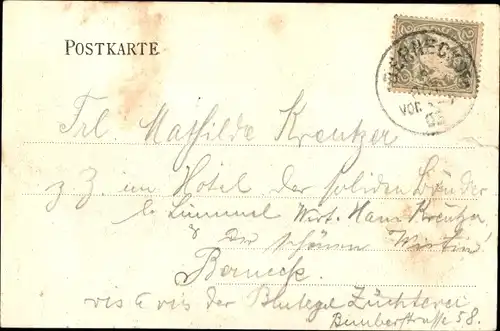 POSTKARTE
BERNECK
VOR.
Frl. Mathilde Kreutzer
z Z. im Hotel der soliden Brüder
b. Wirt. Hans Kreutzer
& Der schönen Wirtin
Berneck.
vis a vis der Blutegel Züchterei
Bimberstrasse 58.